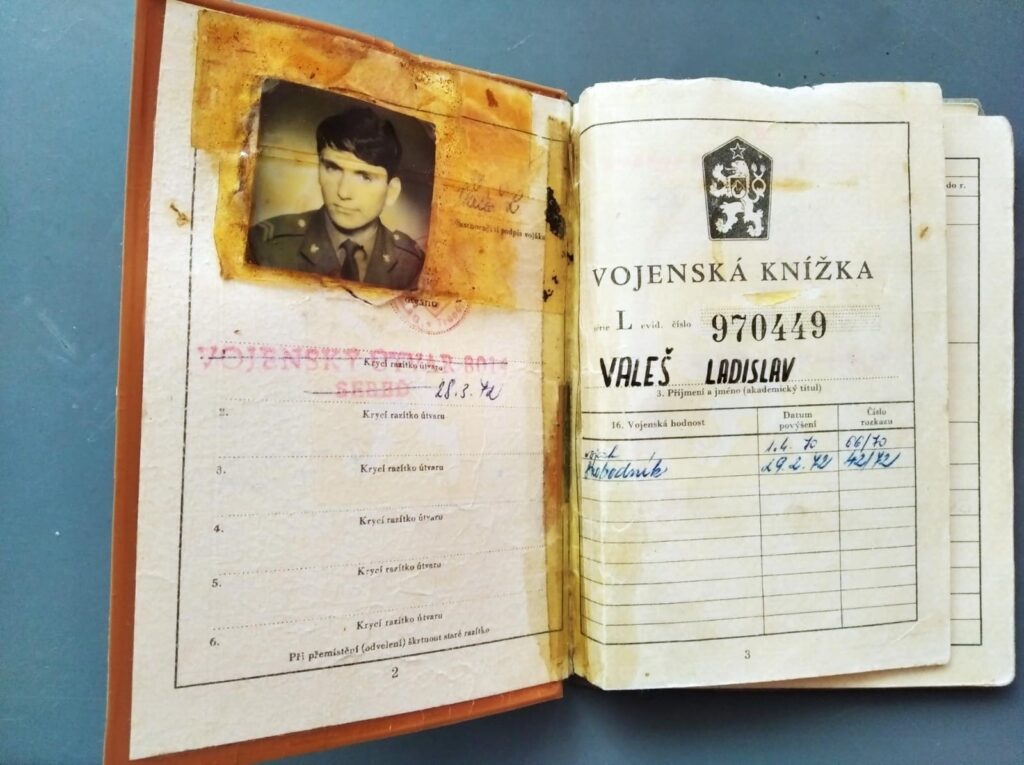 Valeš L
vlastnoruční podpis vojáka
orgánu
VOJENSKÝ ÚTVAR
SEREĎ 28.3.72
Krycí razítko útvaru
2.
Krycí razítko útvaru
3.
Krycí razítko útvaru
4.
Krycí razítko útvaru
5.
Krycí razítko útvaru
6.
Krycí razítko útvaru
Při přemístění (odvelení) škrtnout staré razítko
2
VOJENSKÁ KNÍŽKA
série L evid. číslo 970449
VALEŠ LADISLAV
3. Příjmení a jméno (akademický titul)
16. Vojenská hodnost
Datum povýšení
Číslo rozkazu
vojín 1.4.70 66/70
svobodník 29.2.72 42/72
3
do r.